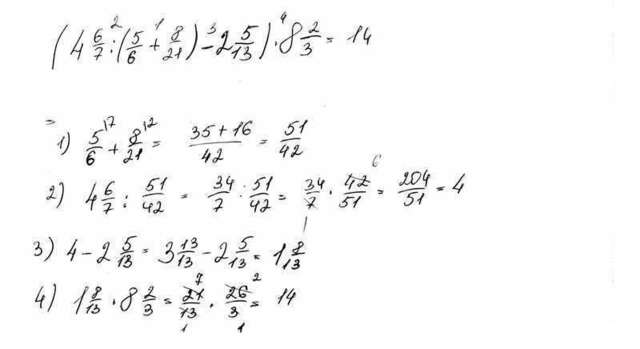 (4 6/7 :² (5/6 +¹ 8/21) −³ 2 5/13) ·⁴ 8 2/3 = 14
=
1) 5/6 ⁽⁷ + 8/21 ⁽² = (35+16)/42 = 51/42
2) 4 6/7 : 51/42 = 34/7 : 51/42 = 34/7 · 42/51 = 204/51 = 4
6
1
3) 4 − 2 5/13 = 3 13/13 − 2 5/13 = 1 8/13
4) 1 8/13 · 8 2/3 = 21/13 · 26/3 = 14
7 2
1 1